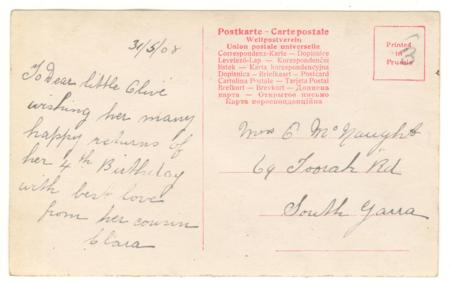 31/5/08
To Dear little Olive
wishing her many
happy returns of
her 4th Birthday
with best love
from her cousin
Clara
Postkarte - Carte postale
Weltpostverein
Union postale universelle
Correspondenz-Karte — Dopisnice
Levelező-Lap — Korespondenční
lístek — Karta korespondencyjna
Dopisnica — Briefkaart — Postcard
Cartolina Postale — Tarjeta Postal
Brefkort — Brevkort — Дописна
карта — Открытое письмо
Карта кореспонденційна
Printed
in
Prussia
3
E McNaught
69 Toorak Rd
South Yarra